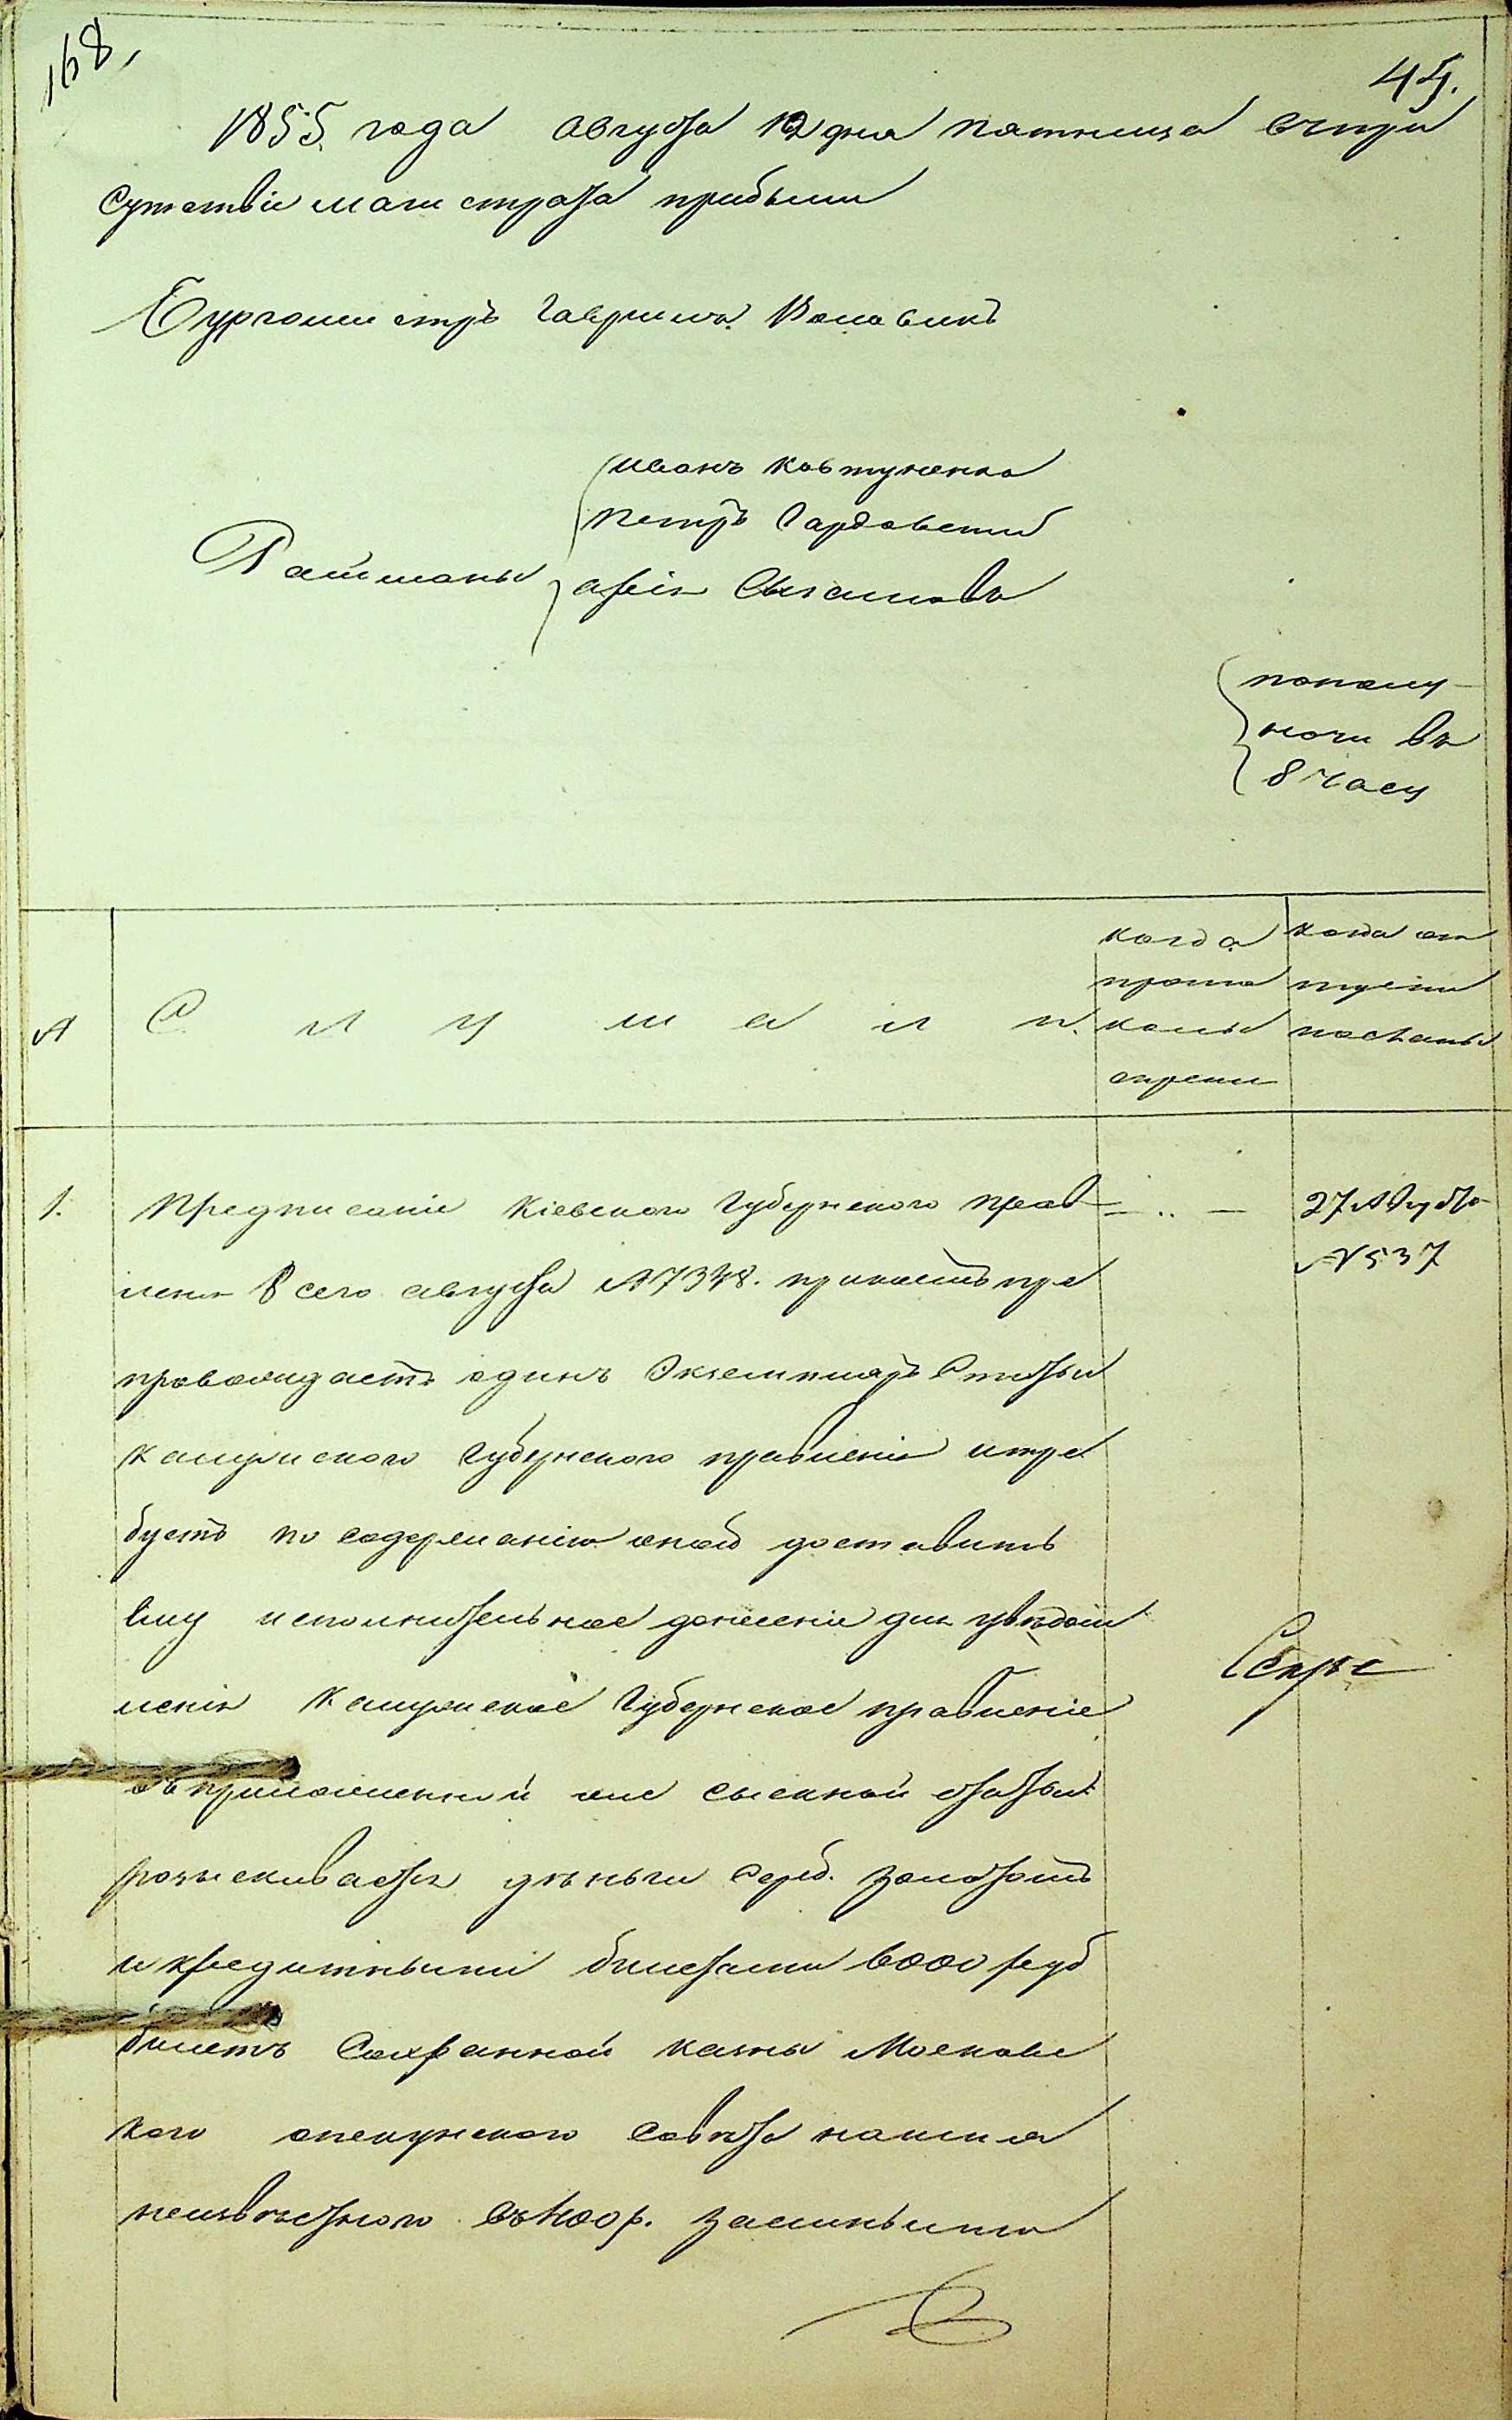 168.
45.
1855 года августа 12 дня пятница въ при
сутствіе магистрата прибыли
Бургомистръ Гаврила
Ратманы
Иванъ Ковтуненко
Петръ Гардовский
пополу-
ночи въ
8 часу
№
Слушали.
когда
прото
колы
скреп
когда от
пущены
1.
Предписаніе Кіевского Губернского прав
ленія 8 сего августа № 7348. при коемъ пре
провождаетъ одинъ Экземпляръ Статьи
Калужского Губернского правленія и тре
буетъ по содержанію оной доставить
ему исполнительное донесеніе для увѣдом
ленія Калужское Губернское правленіе
въ приложенной же сыскной статьи
розыскивается деньги Сереб. золотомъ
и кредитными билетами 6000 руб
билетъ Сохранной казны Московс
кого опекунского Совѣта на имя
неизвѣстного въ 1400 р.
27 Августа
№ 537